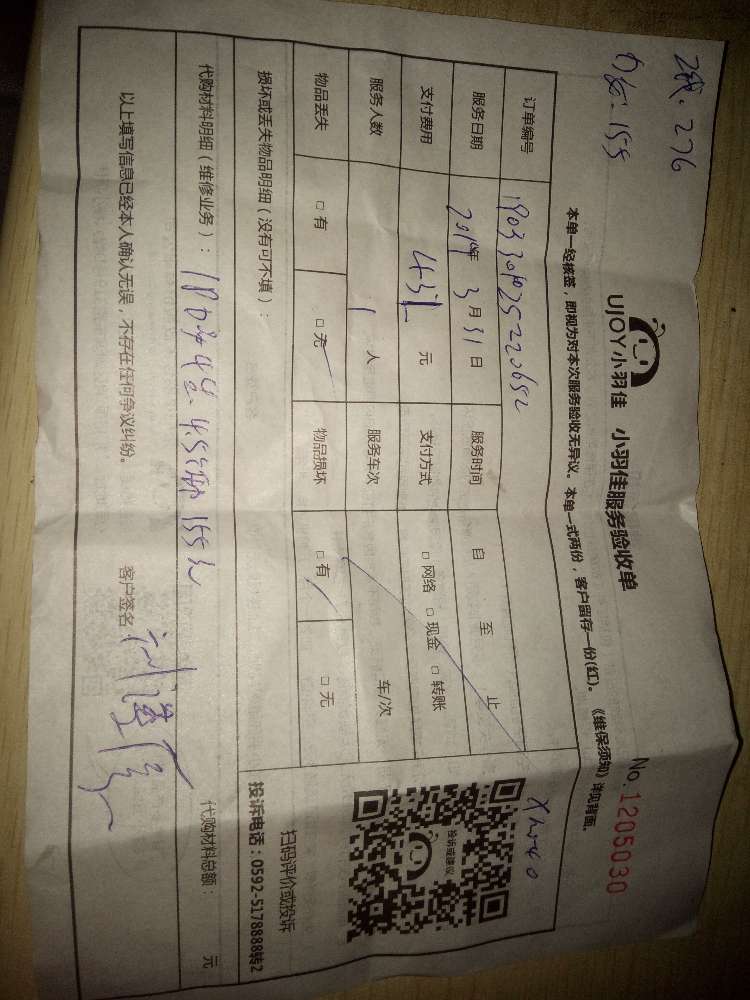 276
155
UJOY小羽佳 小羽佳服务验收单
No.1205030
本单一经核签，即视为对本次服务验收无异议。本单一式两份，客户留存一份(红)。《维保须知》详见背面。
订单编号
服务日期 2019年3月31日 服务时间 自 至 止
支付费用 431元 支付方式 □网络 □现金 □转账
服务人数 1人 服务车次 车/次
物品丢失 □有 □无 物品损坏 □有 □无
损坏或丢失物品明细（没有可不填）：
投诉或建议
扫码评价或投诉
投诉电话：0592-5178888转2
代购材料明细（维修业务）： 155元 代购材料总额： 元
以上填写信息已经本人确认无误，不存在任何争议纠纷。 客户签名